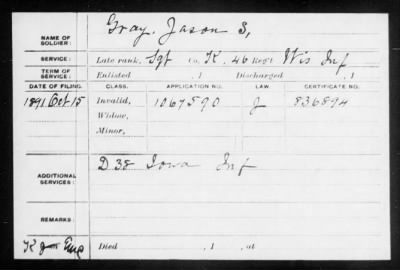 Gray, Jason S,
NAME OF SOLDIER:
SERVICE: Late rank, Sgt Co. K, 46 Reg't Wis Inf
TERM OF SERVICE: Enlisted , 1 Discharged , 1
DATE OF FILING. CLASS. APPLICATION NO. LAW. CERTIFICATE NO.
1891 Oct 15 Invalid, 1067590 J 836894
Widow,
Minor,
D 38 Iowa Inf
ADDITIONAL SERVICES:
REMARKS:
K
Died , 1 , at